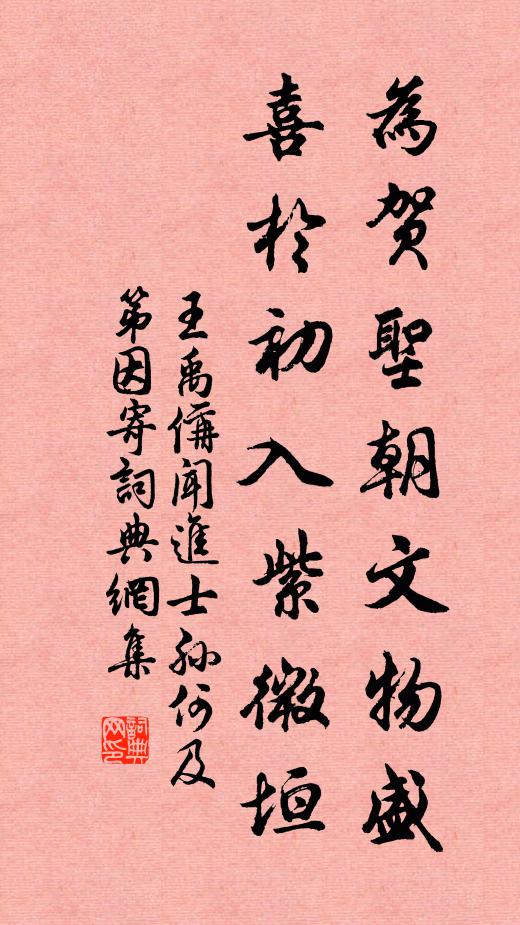 為賀聖朝文物盛
喜於初入紫微垣
王禹偁聞進士孙何及
第因寄詞典網集
詞典網印